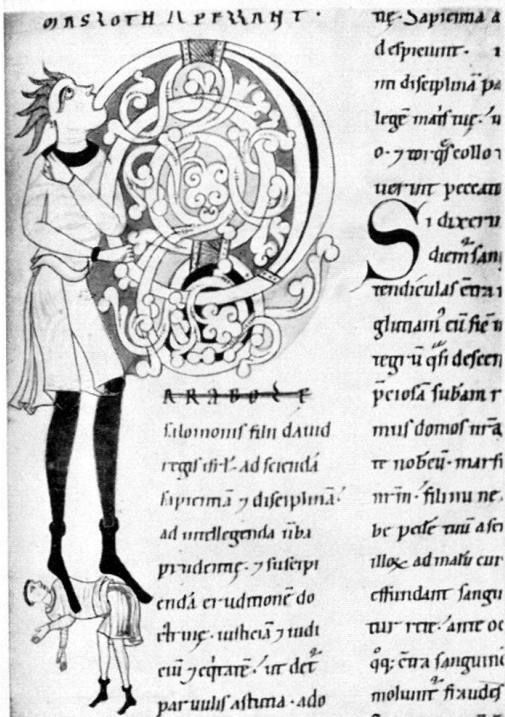 MASLOTH APPELLANT ·
PARABOLE
salomonis filii dauid
regis isrl̄. ad sciendā
sapientiā ⁊ disciplinā.
ad intellegenda ūba
prudentię. ⁊ suscipi
endā eruditionē do
ctrinę. iusticiā ⁊ iudi
ciū ⁊ eqͥtatē. ut det᷑
paruulis astutia. ado
tię. Sapientiā a
despiciunt.
mi disciplinā pa
legē matris tuę. u
o. ⁊ torqͥs collo t
uerint
Si dixerū
san
tendiculas cōtra i
glutiam᷒ eū sic
tegrū qͣsi descen
p̄ciosā subam r
mus domos nr̄a
te nobcū. marsu
nr̄m. fili mi ne
be pedē tuū a sem
illoꝝ ad malū cur
effundant sangu
tur rete. ante oc
qͦq; cōtra sanguinē
moliunt᷑ fraudes